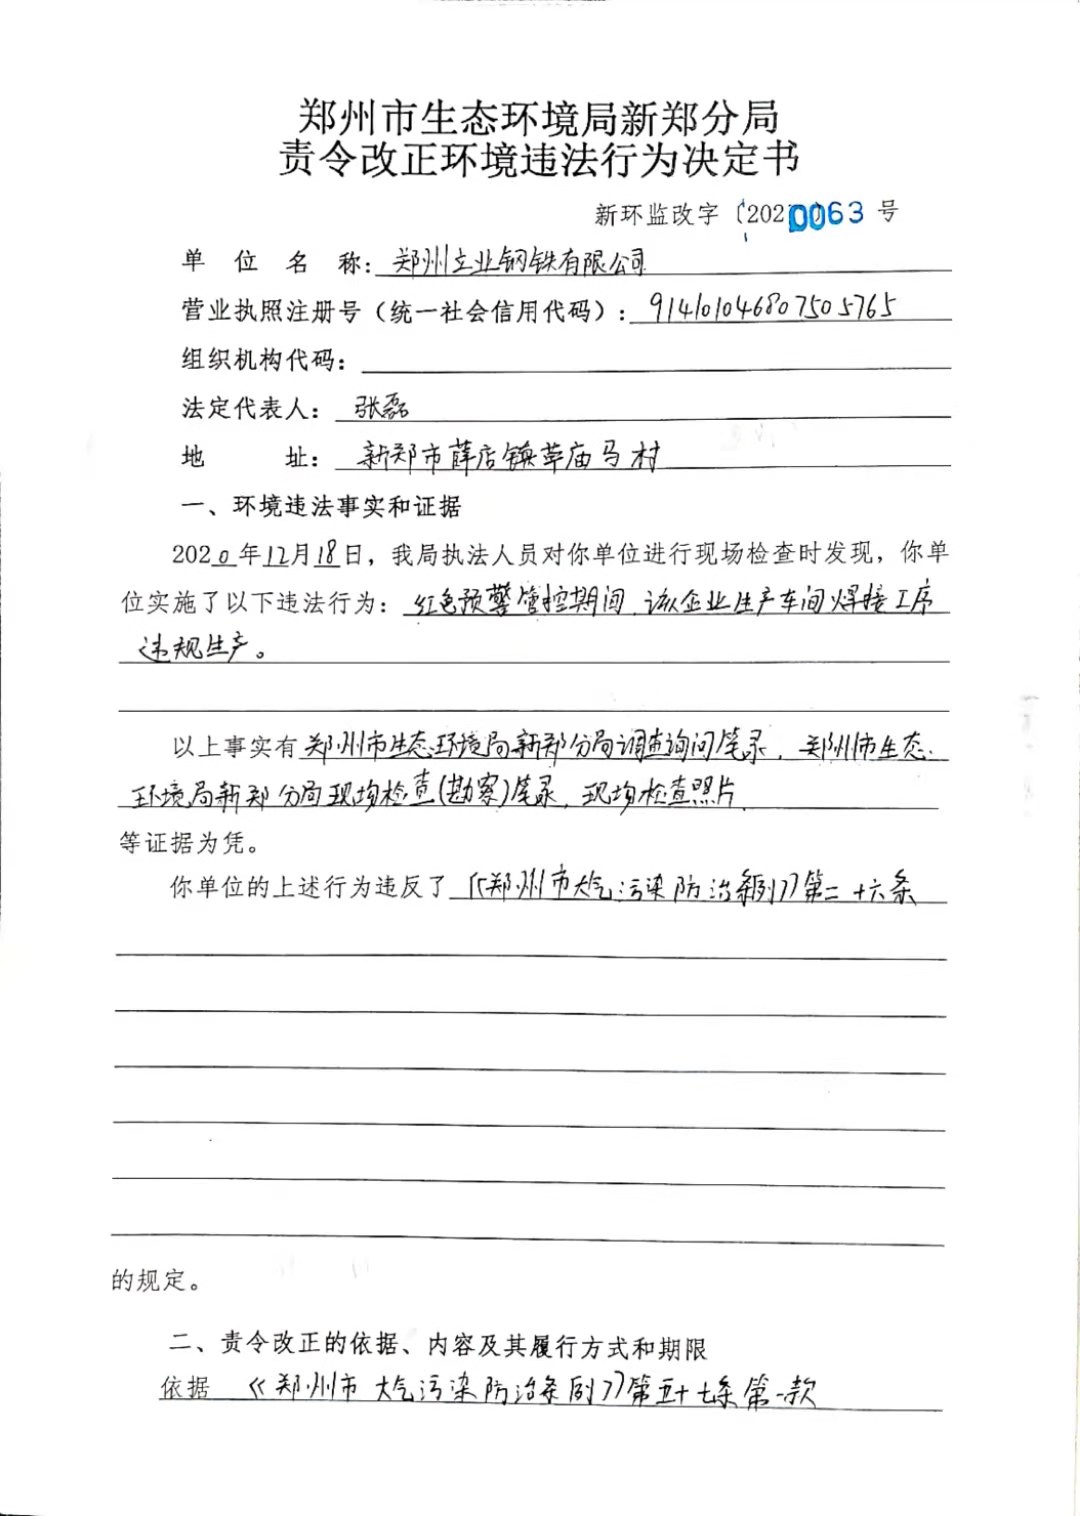 郑州市生态环境局新郑分局
责令改正环境违法行为决定书
新环监改字〔202 0063 号
单 位 名 称：郑州立业钢铁有限公司
营业执照注册号（统一社会信用代码）：914101046807505765
组织机构代码：
法定代表人：张磊
地 址：新郑市薛店镇草庙马村
一、环境违法事实和证据
2020年12月18日，我局执法人员对你单位进行现场检查时发现，你单
位实施了以下违法行为：红色预警管控期间，该企业生产车间焊接工序
违规生产。
以上事实有郑州市生态环境局新郑分局调查询问笔录，郑州市生态
环境局新郑分局现场检查(勘察)笔录，现场检查照片
等证据为凭。
你单位的上述行为违反了《郑州市大气污染防治条例》第二十六条
的规定。
二、责令改正的依据、内容及其履行方式和期限
依据《郑州市大气污染防治条例》第五十七条第一款